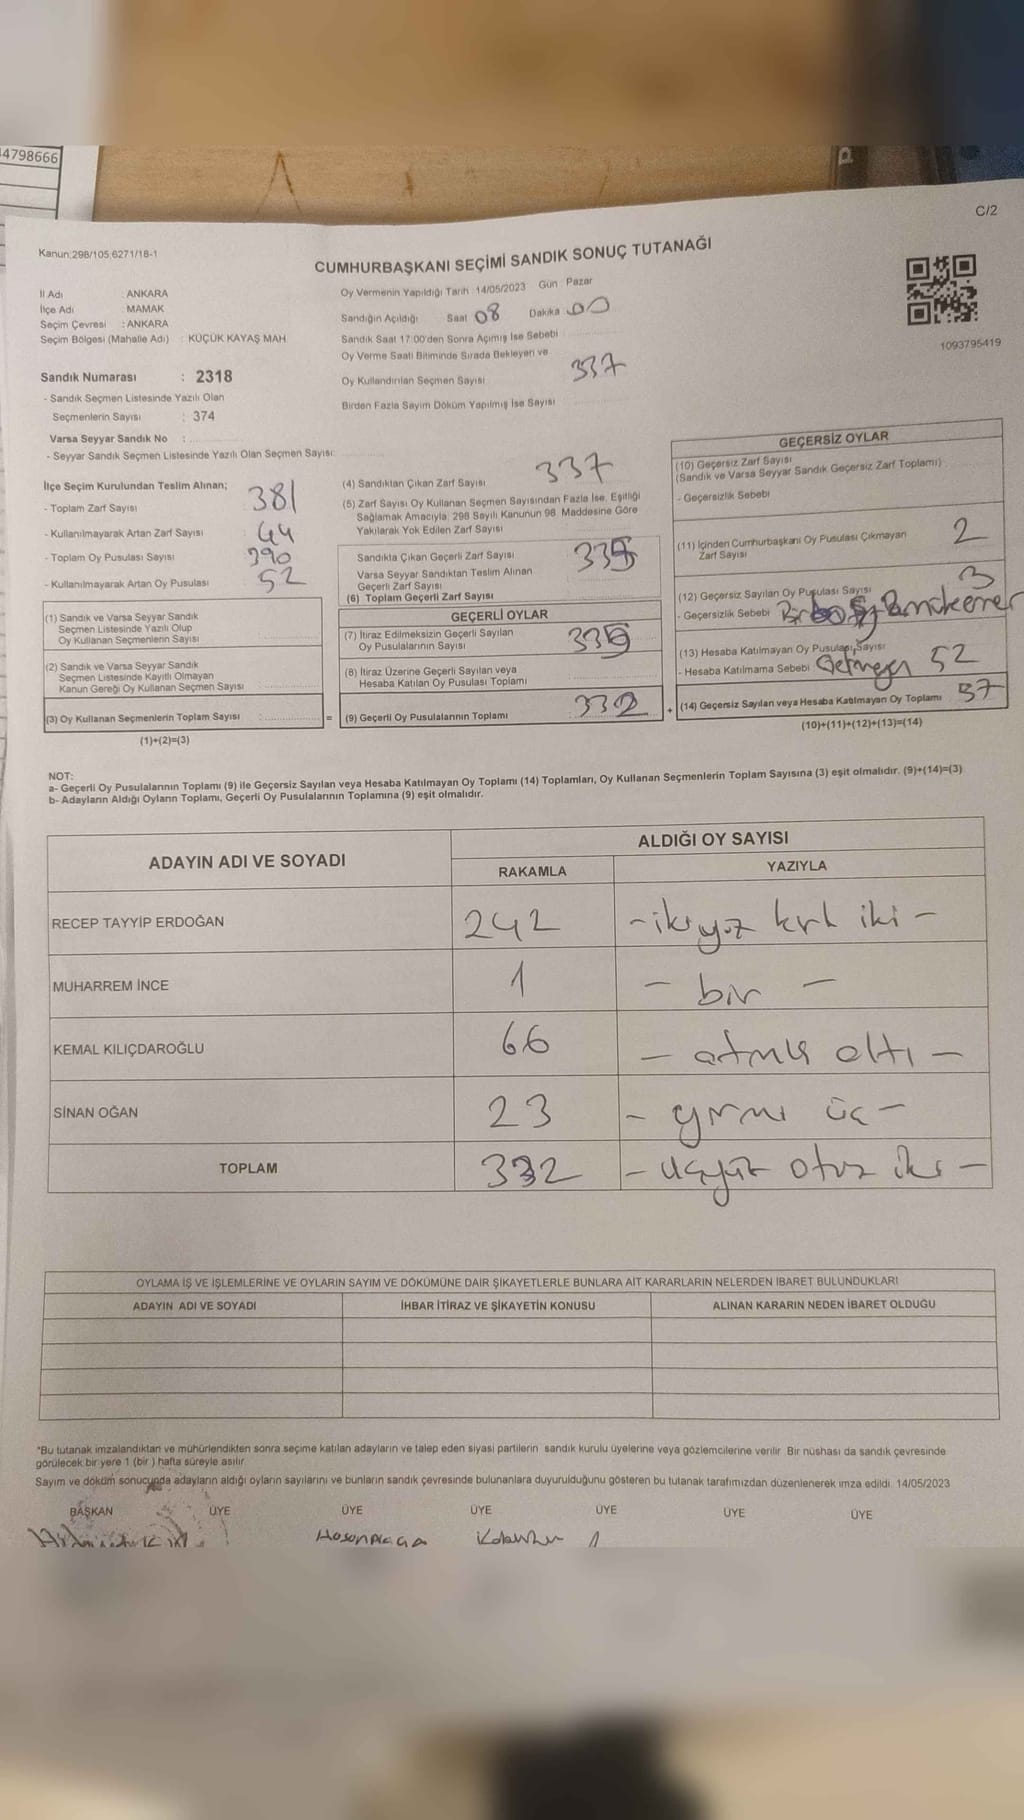 4798666
C/2
Kanun:298/105,6271/18-1
CUMHURBAŞKANI SEÇİMİ SANDIK SONUÇ TUTANAĞI
İl Adı : ANKARA
İlçe Adı : MAMAK
Seçim Çevresi : ANKARA
Seçim Bölgesi (Mahalle Adı) : KÜÇÜK KAYAŞ MAH
Sandık Numarası : 2318
- Sandık Seçmen Listesinde Yazılı Olan
Seçmenlerin Sayısı : 374
Varsa Seyyar Sandık No :
- Seyyar Sandık Seçmen Listesinde Yazılı Olan Seçmen Sayısı:
Oy Vermenin Yapıldığı Tarih : 14/05/2023 Gün : Pazar
Sandığın Açıldığı Saat 08 Dakika 00
Sandık Saat 17:00'den Sonra Açımış İse Sebebi
Oy Verme Saati Bitiminde Sırada Bekleyen ve
Oy Kullandırılan Seçmen Sayısı 337
Birden Fazla Sayım Döküm Yapılmış İse Sayısı
1093795419
İlçe Seçim Kurulundan Teslim Alınan;
- Toplam Zarf Sayısı 381
- Kullanılmayarak Artan Zarf Sayısı 44
- Toplam Oy Pusulası Sayısı 390
- Kullanılmayarak Artan Oy Pusulası 52
(1) Sandık ve Varsa Seyyar Sandık
Seçmen Listesinde Yazılı Olup
Oy Kullanan Seçmenlerin Sayısı
(2) Sandık ve Varsa Seyyar Sandık
Seçmen Listesinde Kayıtlı Olmayan
Kanun Gereği Oy Kullanan Seçmen Sayısı
(3) Oy Kullanan Seçmenlerin Toplam Sayısı : =
(1)+(2)=(3)
(4) Sandıktan Çıkan Zarf Sayısı 337
(5) Zarf Sayısı Oy Kullanan Seçmen Sayısından Fazla İse, Eşitliği
Sağlamak Amacıyla; 298 Sayılı Kanunun 98. Maddesine Göre
Yakılarak Yok Edilen Zarf Sayısı
Sandıkta Çıkan Geçerli Zarf Sayısı
Varsa Seyyar Sandıktan Teslim Alınan
Geçerli Zarf Sayısı
(6) Toplam Geçerli Zarf Sayısı
GEÇERLİ OYLAR
(7) İtiraz Edilmeksizin Geçerli Sayılan
Oy Pusulalarının Sayısı
(8) İtiraz Üzerine Geçerli Sayılan veya
Hesaba Katılan Oy Pusulası Toplamı
(9) Geçerli Oy Pusulalarının Toplamı : 332 +
GEÇERSİZ OYLAR
(10) Geçersiz Zarf Sayısı
(Sandık ve Varsa Seyyar Sandık Geçersiz Zarf Toplamı)
- Geçersizlik Sebebi
(11) İçinden Cumhurbaşkanı Oy Pusulası Çıkmayan
Zarf Sayısı 2
(12) Geçersiz Sayılan Oy Pusulası Sayısı 3
- Geçersizlik Sebebi
(13) Hesaba Katılmayan Oy Pusulası Sayısı
- Hesaba Katılmama Sebebi 52
(14) Geçersiz Sayılan veya Hesaba Katılmayan Oy Toplamı 57
(10)+(11)+(12)+(13)=(14)
NOT:
a- Geçerli Oy Pusulalarının Toplamı (9) ile Geçersiz Sayılan veya Hesaba Katılmayan Oy Toplamı (14) Toplamları, Oy Kullanan Seçmenlerin Toplam Sayısına (3) eşit olmalıdır. (9)+(14)=(3)
b- Adayların Aldığı Oyların Toplamı, Geçerli Oy Pusulalarının Toplamına (9) eşit olmalıdır.
ADAYIN ADI VE SOYADI ALDIĞI OY SAYISI
RAKAMLA YAZIYLA
RECEP TAYYİP ERDOĞAN 242 - ikiyüz kırk iki -
MUHARREM İNCE 1 - bir -
KEMAL KILIÇDAROĞLU 66 - atmış altı -
SİNAN OĞAN 23 - yirmi üç -
TOPLAM 332 - üçyüz otuz iki -
OYLAMA İŞ VE İŞLEMLERİNE VE OYLARIN SAYIM VE DÖKÜMÜNE DAİR ŞİKAYETLERLE BUNLARA AİT KARARLARIN NELERDEN İBARET BULUNDUKLARI
ADAYIN ADI VE SOYADI İHBAR İTİRAZ VE ŞİKAYETİN KONUSU ALINAN KARARIN NEDEN İBARET OLDUĞU
*Bu tutanak imzalandıktan ve mühürlendikten sonra seçime katılan adayların ve talep eden siyasi partilerin sandık kurulu üyelerine veya gözlemcilerine verilir. Bir nüshası da sandık çevresinde
görülecek bir yere 1 (bir ) hafta süreyle asılır.
Sayım ve döküm sonucunda adayların aldığı oyların sayılarını ve bunların sandık çevresinde bulunanlara duyurulduğunu gösteren bu tutanak tarafımızdan düzenlenerek imza edildi. 14/05/2023
BAŞKAN ÜYE ÜYE ÜYE ÜYE ÜYE ÜYE